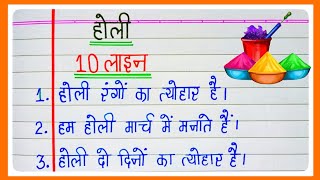 होली
10 लाइन
1. होली रंगों का त्योहार है।
2. हम होली मार्च में मनाते हैं।
3. होली दो दिनों का त्योहार है।